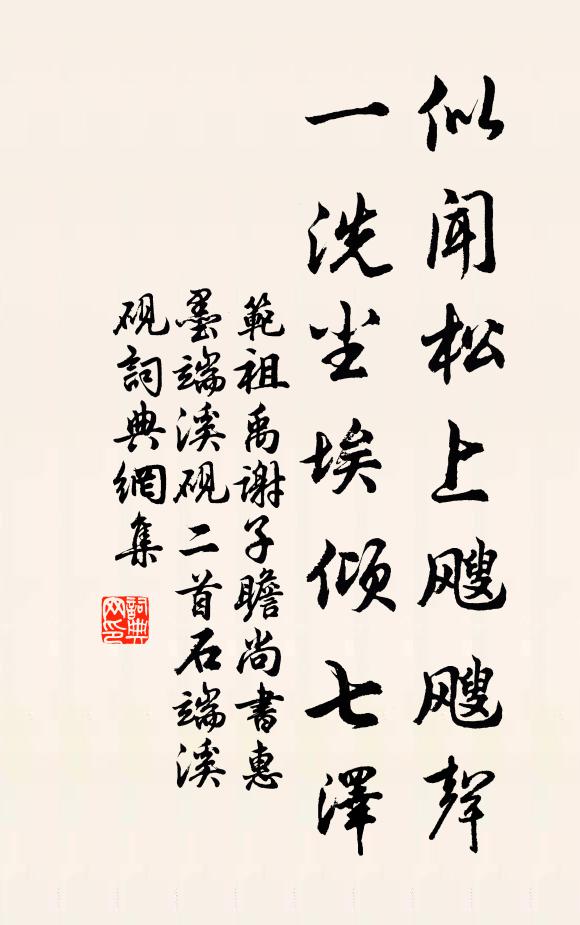 似闻松上飕飕聲
一洗尘埃倾七澤
範祖禹謝子瞻尚書惠
墨端溪硯二首石端溪
硯詞典網集
詞典
网印